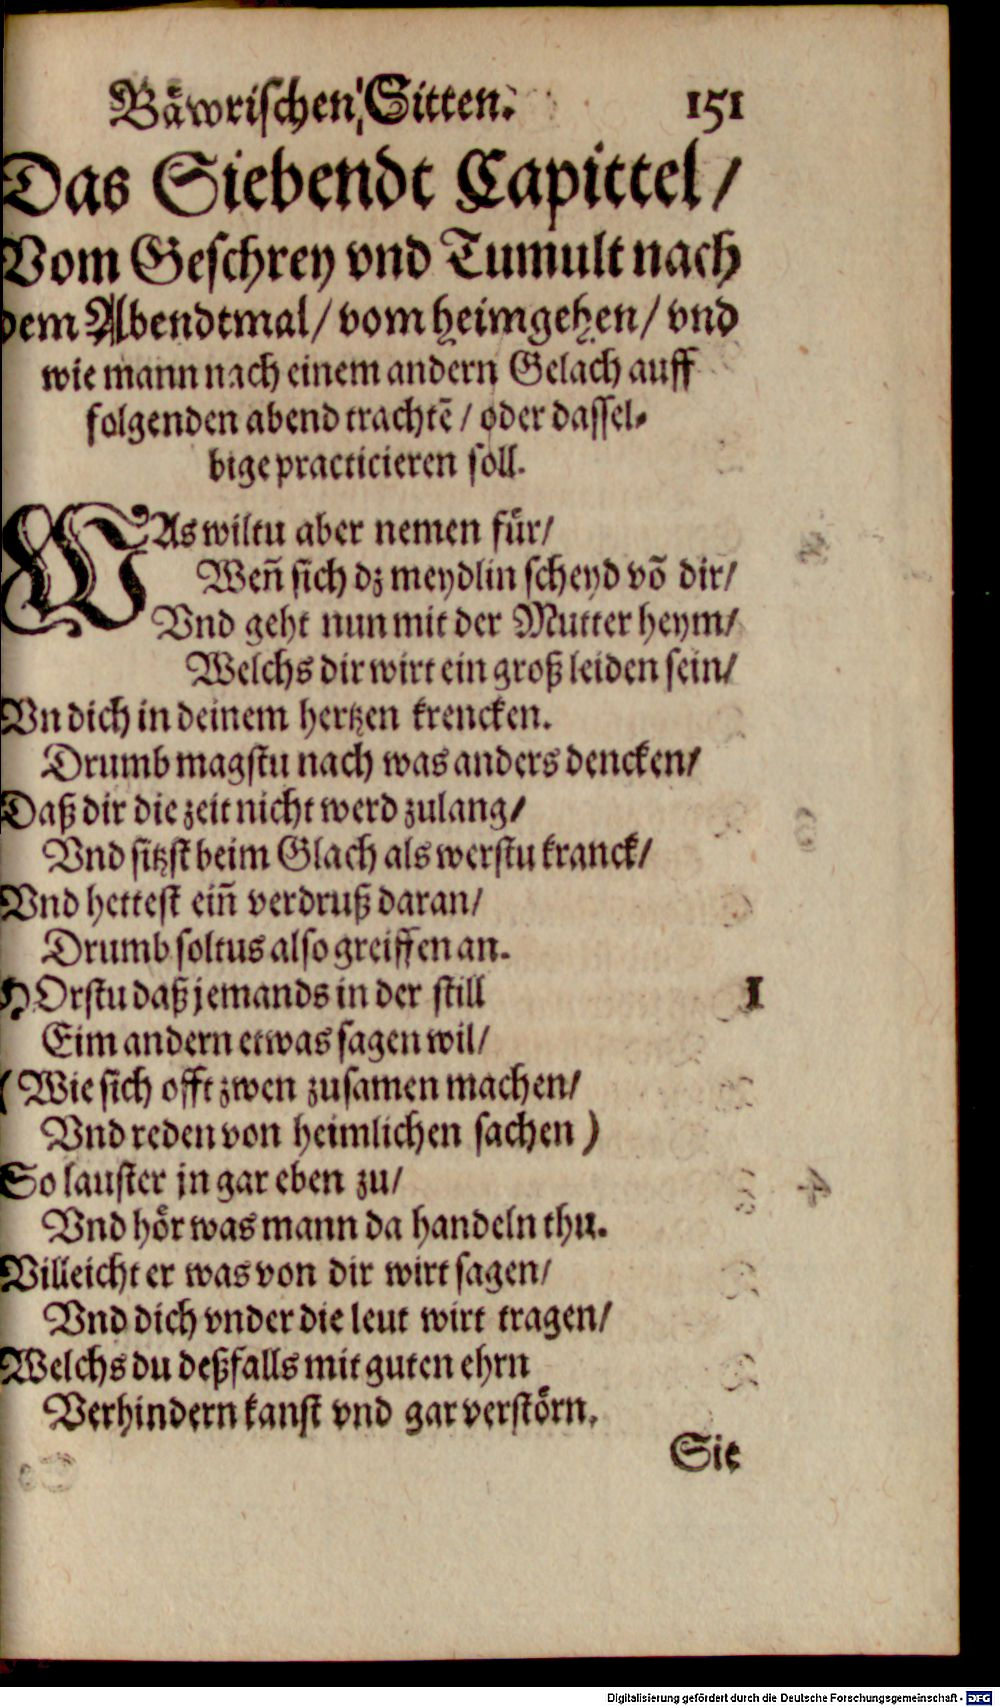 Bäwrischen Sitten. 151
Das Siebendt Capittel/
Vom Geschrey vnd Tumult nach
dem Abendtmal/ vom heimgehen/ vnd
wie mann nach einem andern Gelach auff
folgenden abend trachtē/ oder dassel-
bige practicieren soll.
WAs wiltu aber nemen für/
Weñ sich dz meydlin scheyd võ dir/
Vnd geht nun mit der Mutter heym/
Welchs dir wirt ein groß leiden sein/
Vn dich in deinem hertzen krencken.
Drumb magstu nach was anders dencken/
Daß dir die zeit nicht werd zulang/
Vnd sitzst beim Glach als werstu kranck/
Vnd hettest eiñ verdruß daran/
Drumb soltus also greiffen an.
HOrstu daß jemands in der still 1
Eim andern etwas sagen wil/
(Wie sich offt zwen zusamen machen/
Vnd reden von heimlichen sachen)
So lauster jn gar eben zu/
Vnd hör was mann da handeln thu.
Villeicht er was von dir wirt sagen/
Vnd dich vnder die leut wirt tragen/
Welchs du deßfalls mit guten ehrn
Verhindern kanst vnd gar verstörn.
Sie
Digitalisierung gefördert durch die Deutsche Forschungsgemeinschaft - DFG